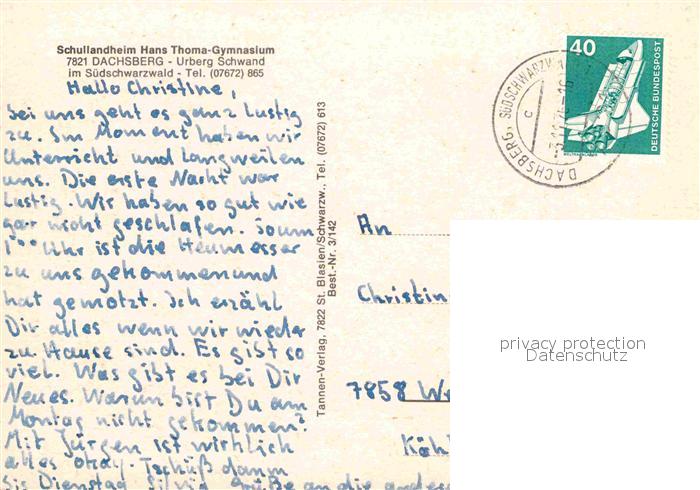 Schullandheim Hans Thoma-Gymnasium
7821 DACHSBERG - Urberg Schwand
im Südschwarzwald - Tel. (07672) 865
Hallo Christine,
bei uns geht es ganz lustig
zu. Im Moment haben wir
Unterricht und langweilen
uns. Die erste Nacht war
lustig. Wir haben so gut wie
gar nicht geschlafen. So um
1°° Uhr ist die Heumesser
zu uns gekommen und
hat gemotzt. Ich erzähl
Dir alles wenn wir wieder
zu Hause sind. Es gibt so
viel. Was gibt es bei Dir
Neues. Warum bist Du am
Montag nicht gekommen?
Mit Jürgen ist wirklich
alles okay. Tschüß dann
bis Dienstag Silvia Grüße an die anderen
Tannen-Verlag, 7822 St. Blasien/Schwarzw., Tel. (07672) 613
Best.-Nr. 3/142
40
DEUTSCHE BUNDESPOST
WELTRAUMLABOR
DACHSBERG, SÜDSCHWARZW
c
An
Christin
7858 We
Kähl
privacy protection
Datenschutz